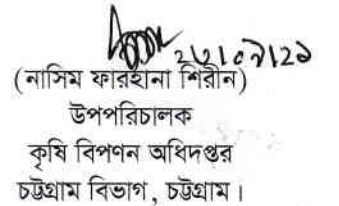 ২৬/০৭/২১
(নাসিম ফারহানা শিরীন)
উপপরিচালক
কৃষি বিপণন অধিদপ্তর
চট্টগ্রাম বিভাগ, চট্টগ্রাম।